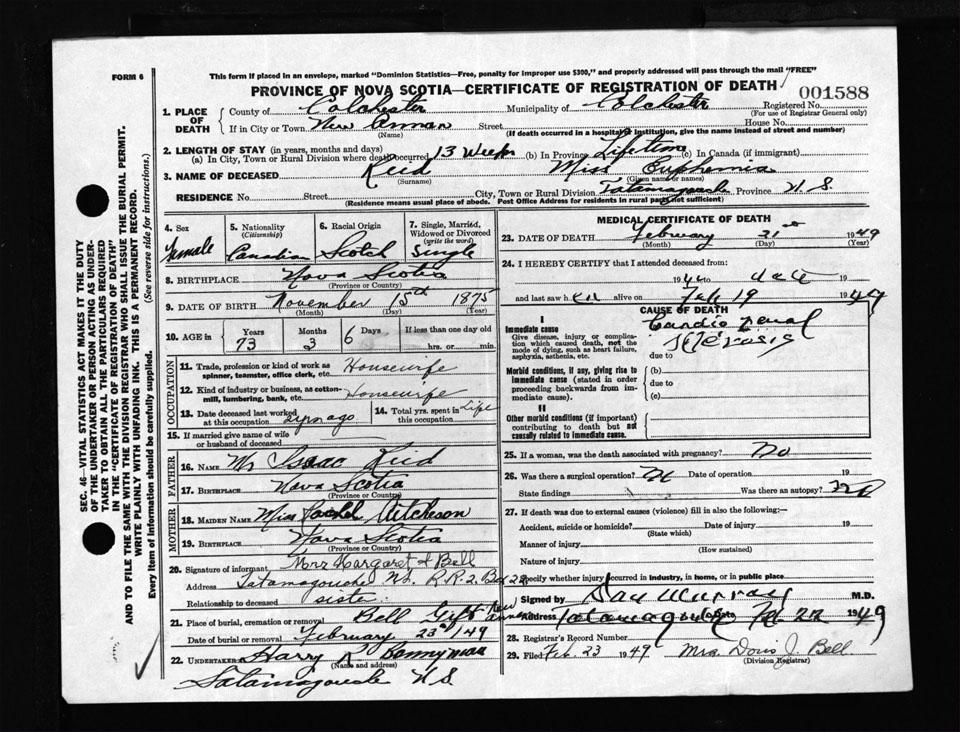 FORM 6
This form if placed in an envelope, marked "Dominion Statistics—Free, penalty for improper use $300," and properly addressed will pass through the mail "FREE"
PROVINCE OF NOVA SCOTIA—CERTIFICATE OF REGISTRATION OF DEATH
001588
1. PLACE OF DEATH County of Colchester Municipality of Colchester Registered No.
(For use of Registrar General only)
If in City or Town New Annan Street House No.
(Name) (If death occurred in a hospital or institution, give the name instead of street and number)
2. LENGTH OF STAY (in years, months and days)
(a) In City, Town or Rural Division where death occurred 13 Weeks (b) In Province Lifetime (c) In Canada (if immigrant)
3. NAME OF DECEASED Reid Miss Euphemia
(Surname) (Given name or names)
RESIDENCE No. Street City, Town or Rural Division Tatamagouche Province N.S.
(Residence means usual place of abode. Post Office Address for residents in rural parts not sufficient)
4. Sex Female
5. Nationality (Citizenship) Canadian
6. Racial Origin Scotch
7. Single, Married, Widowed or Divorced (write the word) Single
8. BIRTHPLACE Nova Scotia
(Province or Country)
9. DATE OF BIRTH November 15th 1875
(Month) (Day) (Year)
10. AGE in Years 73 Months 3 Days 6 If less than one day old hrs. or min.
OCCUPATION
11. Trade, profession or kind of work as spinner, teamster, office clerk, etc. Housewife
12. Kind of industry or business, as cotton-mill, lumbering, bank, etc. Housewife
13. Date deceased last worked at this occupation 2 yrs ago
14. Total yrs. spent in this occupation Life
15. If married give name of wife or husband of deceased
FATHER
16. NAME Mr Isaac Reid
17. BIRTHPLACE Nova Scotia
(Province or Country)
MOTHER
18. MAIDEN NAME Miss Aitcheson
19. BIRTHPLACE Nova Scotia
(Province or Country)
20. Signature of informant Mrs Margaret I Bell
Address Tatamagouche N.S. R.R.2. Box 28
Relationship to deceased sister
21. Place of burial, cremation or removal Bell New Annan
Date of burial or removal February 23rd/49
22. Undertaker Harry Bonnyman
(Name and address)
Tatamagouche N.S.
MEDICAL CERTIFICATE OF DEATH
23. DATE OF DEATH February 21st 1949
(Month) (Day) (Year)
24. I HEREBY CERTIFY that I attended deceased from:
19 to 19
and last saw her alive on Feb 19 1949
CAUSE OF DEATH
I
Immediate cause
Give disease, injury or complication which caused death, not the mode of dying, such as heart failure, asphyxia, asthenia, etc.
Cardio renal sclerosis
due to
Morbid conditions, if any, giving rise to immediate cause (stated in order proceeding backwards from immediate cause).
(b)
due to
(c)
II
Other morbid conditions (if important) contributing to death but not causally related to immediate cause.
25. If a woman, was the death associated with pregnancy? No
26. Was there a surgical operation? No Date of operation 19
State findings Was there an autopsy? No
27. If death was due to external causes (violence) fill in also the following:—
Accident, suicide or homicide? Date of injury 19
(State which)
Manner of injury
(How sustained)
Nature of injury
Specify whether injury occurred in industry, in home, or in public place
Signed by Dan Murray M.D.
Address Tatamagouche Date Feb 22 1949
28. Registrar's Record Number
29. Filed Feb. 23 1949 Mrs. Doris J. Bell
(Division Registrar)
SEC. 46—VITAL STATISTICS ACT MAKES IT THE DUTY OF THE UNDERTAKER OR PERSON ACTING AS UNDERTAKER TO OBTAIN ALL THE PARTICULARS REQUIRED IN THE "CERTIFICATE OF REGISTRATION OF DEATH" AND TO FILE THE SAME WITH THE DIVISION REGISTRAR WHO SHALL ISSUE THE BURIAL PERMIT.
WRITE PLAINLY WITH UNFADING INK. THIS IS A PERMANENT RECORD.
Every item of information should be carefully supplied. (See reverse side for instructions.)